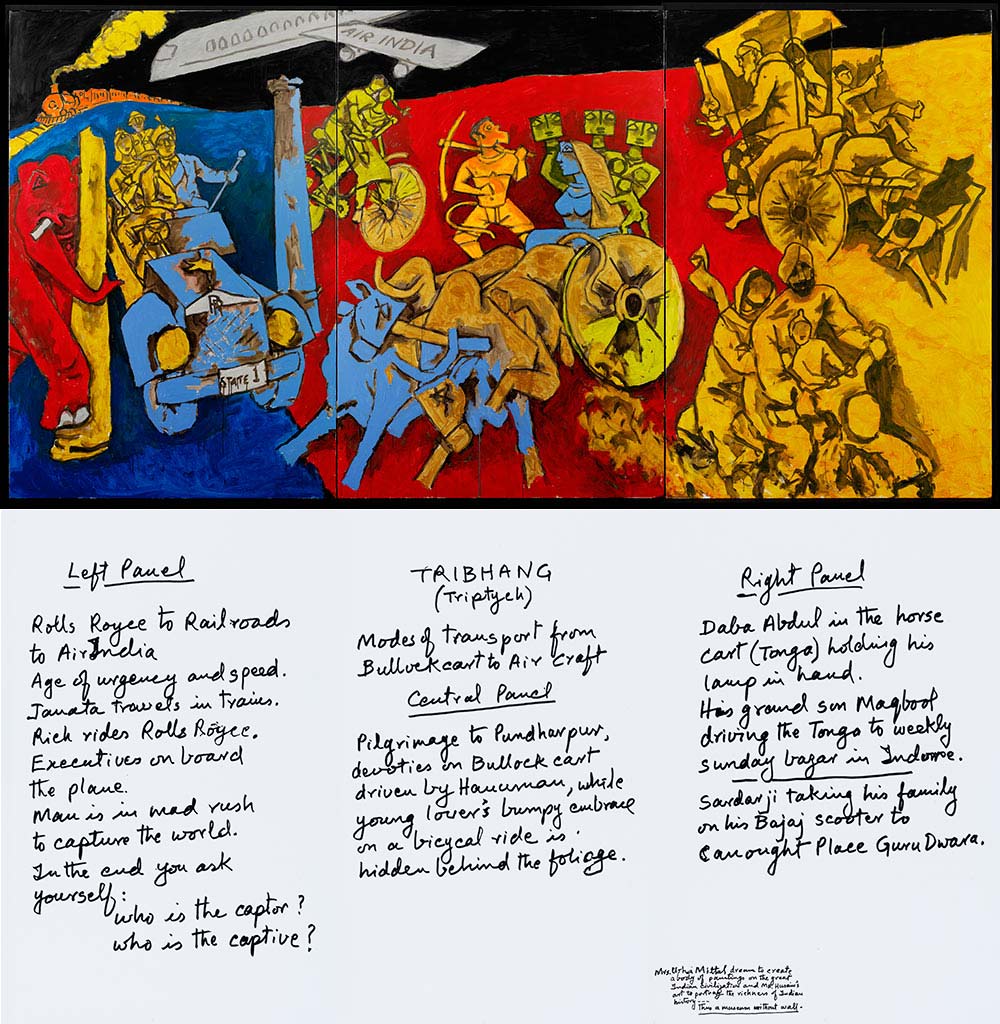 AIR INDIA
RR
STATE 1
Left Panel
Rolls Royce to Railroads
to Air India
Age of urgency and speed.
Janata travels in trains.
Rich rides Rolls Royce.
Executives on board
the plane.
Man is in mad rush
to capture the world.
In the end you ask
yourself:
who is the captor?
who is the captive?
TRIBHANG
(Triptych)
Modes of transport from
Bullock cart to Air Craft
Central Panel
Pilgrimage to Pundharpur,
devoties on Bullock cart
driven by Hanuman, while
young lover's bumpy embrace
on a bicycal ride is
hidden behind the foliage.
Right Panel
Daba Abdul in the horse
cart (Tonga) holding his
lamp in hand.
His grand son Maqbool
driving the Tonga to weekly
sunday bazar in Indore.
Sardarji taking his family
on his Bajaj scooter to
Canought Place GuruDwara.
Mrs. Usha Mittal dream to create
a body of paintings on the great
Indian Civilization and MF Husain's
art to portray the richness of Indian
history---
Thus a museum without wall-